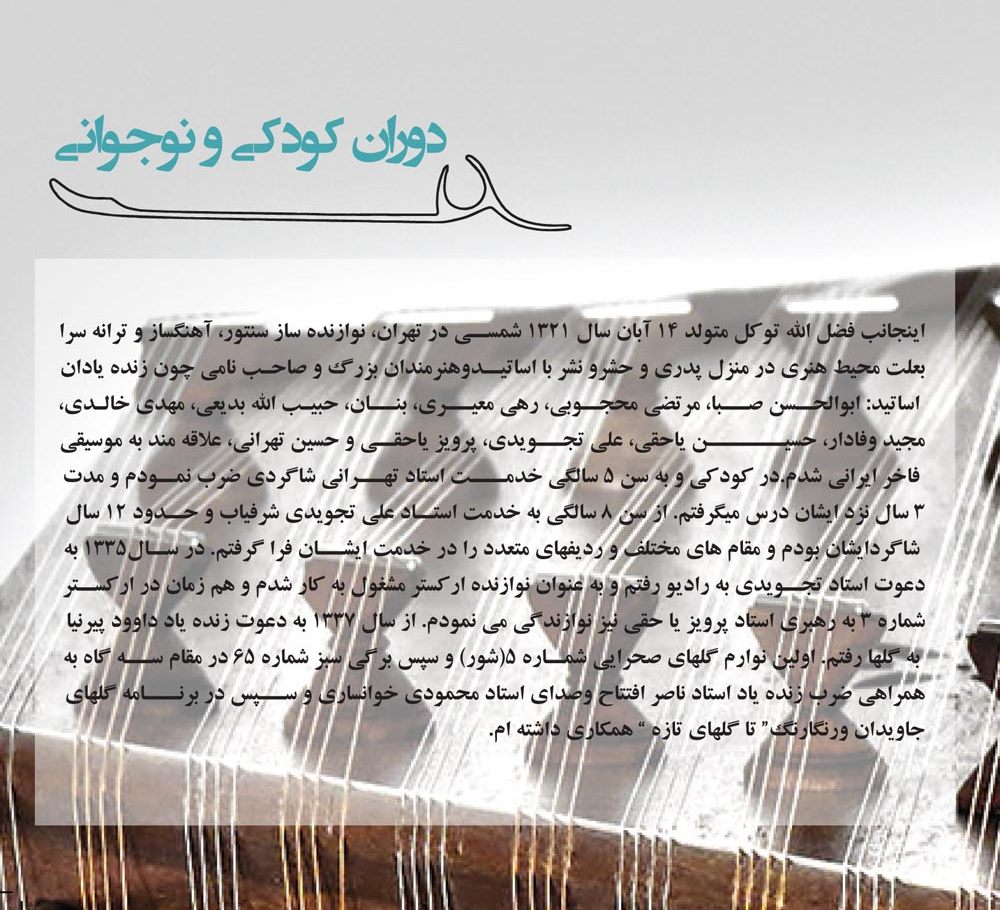 دوران کودکی و نوجوانی
اینجانب فضل الله توکل متولد ۱۴ آبان سال ۱۳۲۱ شمسی در تهران، نوازنده ساز سنتور، آهنگساز و ترانه سرا
بعلت محیط هنری در منزل پدری و حشرو نشر با اساتیدوهنرمندان بزرگ و صاحب نامی چون زنده یادان
اساتید: ابوالحسن صبا، مرتضی محجوبی، رهی معیری، بنان، حبیب الله بدیعی، مهدی خالدی،
مجید وفادار، حسین یاحقی، علی تجویدی، پرویز یاحقی و حسین تهرانی، علاقه مند به موسیقی
فاخر ایرانی شدم.در کودکی و به سن ۵ سالگی خدمت استاد تهرانی شاگردی ضرب نمودم و مدت
۳ سال نزد ایشان درس میگرفتم. از سن ۸ سالگی به خدمت استاد علی تجویدی شرفیاب و حدود ۱۲ سال
شاگردایشان بودم و مقام های مختلف و ردیفهای متعدد را در خدمت ایشان فرا گرفتم. در سال۱۳۳۵ به
دعوت استاد تجویدی به رادیو رفتم و به عنوان نوازنده ارکستر مشغول به کار شدم و هم زمان در ارکستر
شماره ۳ به رهبری استاد پرویز یا حقی نیز نوازندگی می نمودم. از سال ۱۳۳۷ به دعوت زنده یاد داوود پیرنیا
به گلها رفتم. اولین نوارم گلهای صحرایی شماره ۵(شور) و سپس برگی سبز شماره ۶۵ در مقام سه گاه به
همراهی ضرب زنده یاد استاد ناصر افتتاح وصدای استاد محمودی خوانساری و سپس در برنامه گلهای
جاویدان ورنگارنگ" تا گلهای تازه " همکاری داشته ام.